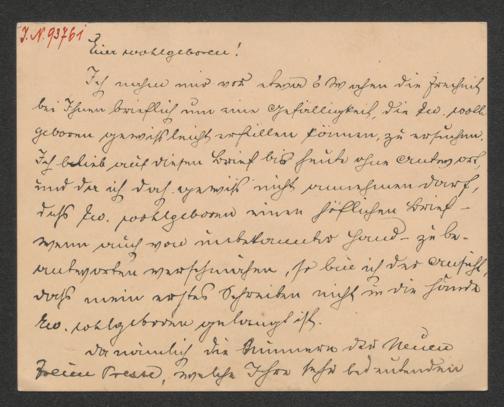 J. N. 93761
Euer Wohlgeboren!
Ich nahm mir vor etwa 6 Wochen die Freiheit
bei Ihnen brieflich um eine Gefälligkeit, die Ew. Wohl-
geboren gewiß leicht erfüllen können, zu ersuchen.
Ich blieb auf diesen Brief bis heute ohne Antwort
und da ich doch gewiß nicht annehmen darf,
daß Ew. Wohlgeboren einen höflichen Brief –
wenn auch von unbekannter Hand – zu be-
antworten verschmähen, so bin ich der Ansicht,
daß mein erstes Schreiben nicht in die Hände
Ew. Wohlgeboren gelangt ist.
Da nämlich die Nummern der Neuen
Freien Presse, welche Ihre sehr bedeutenden